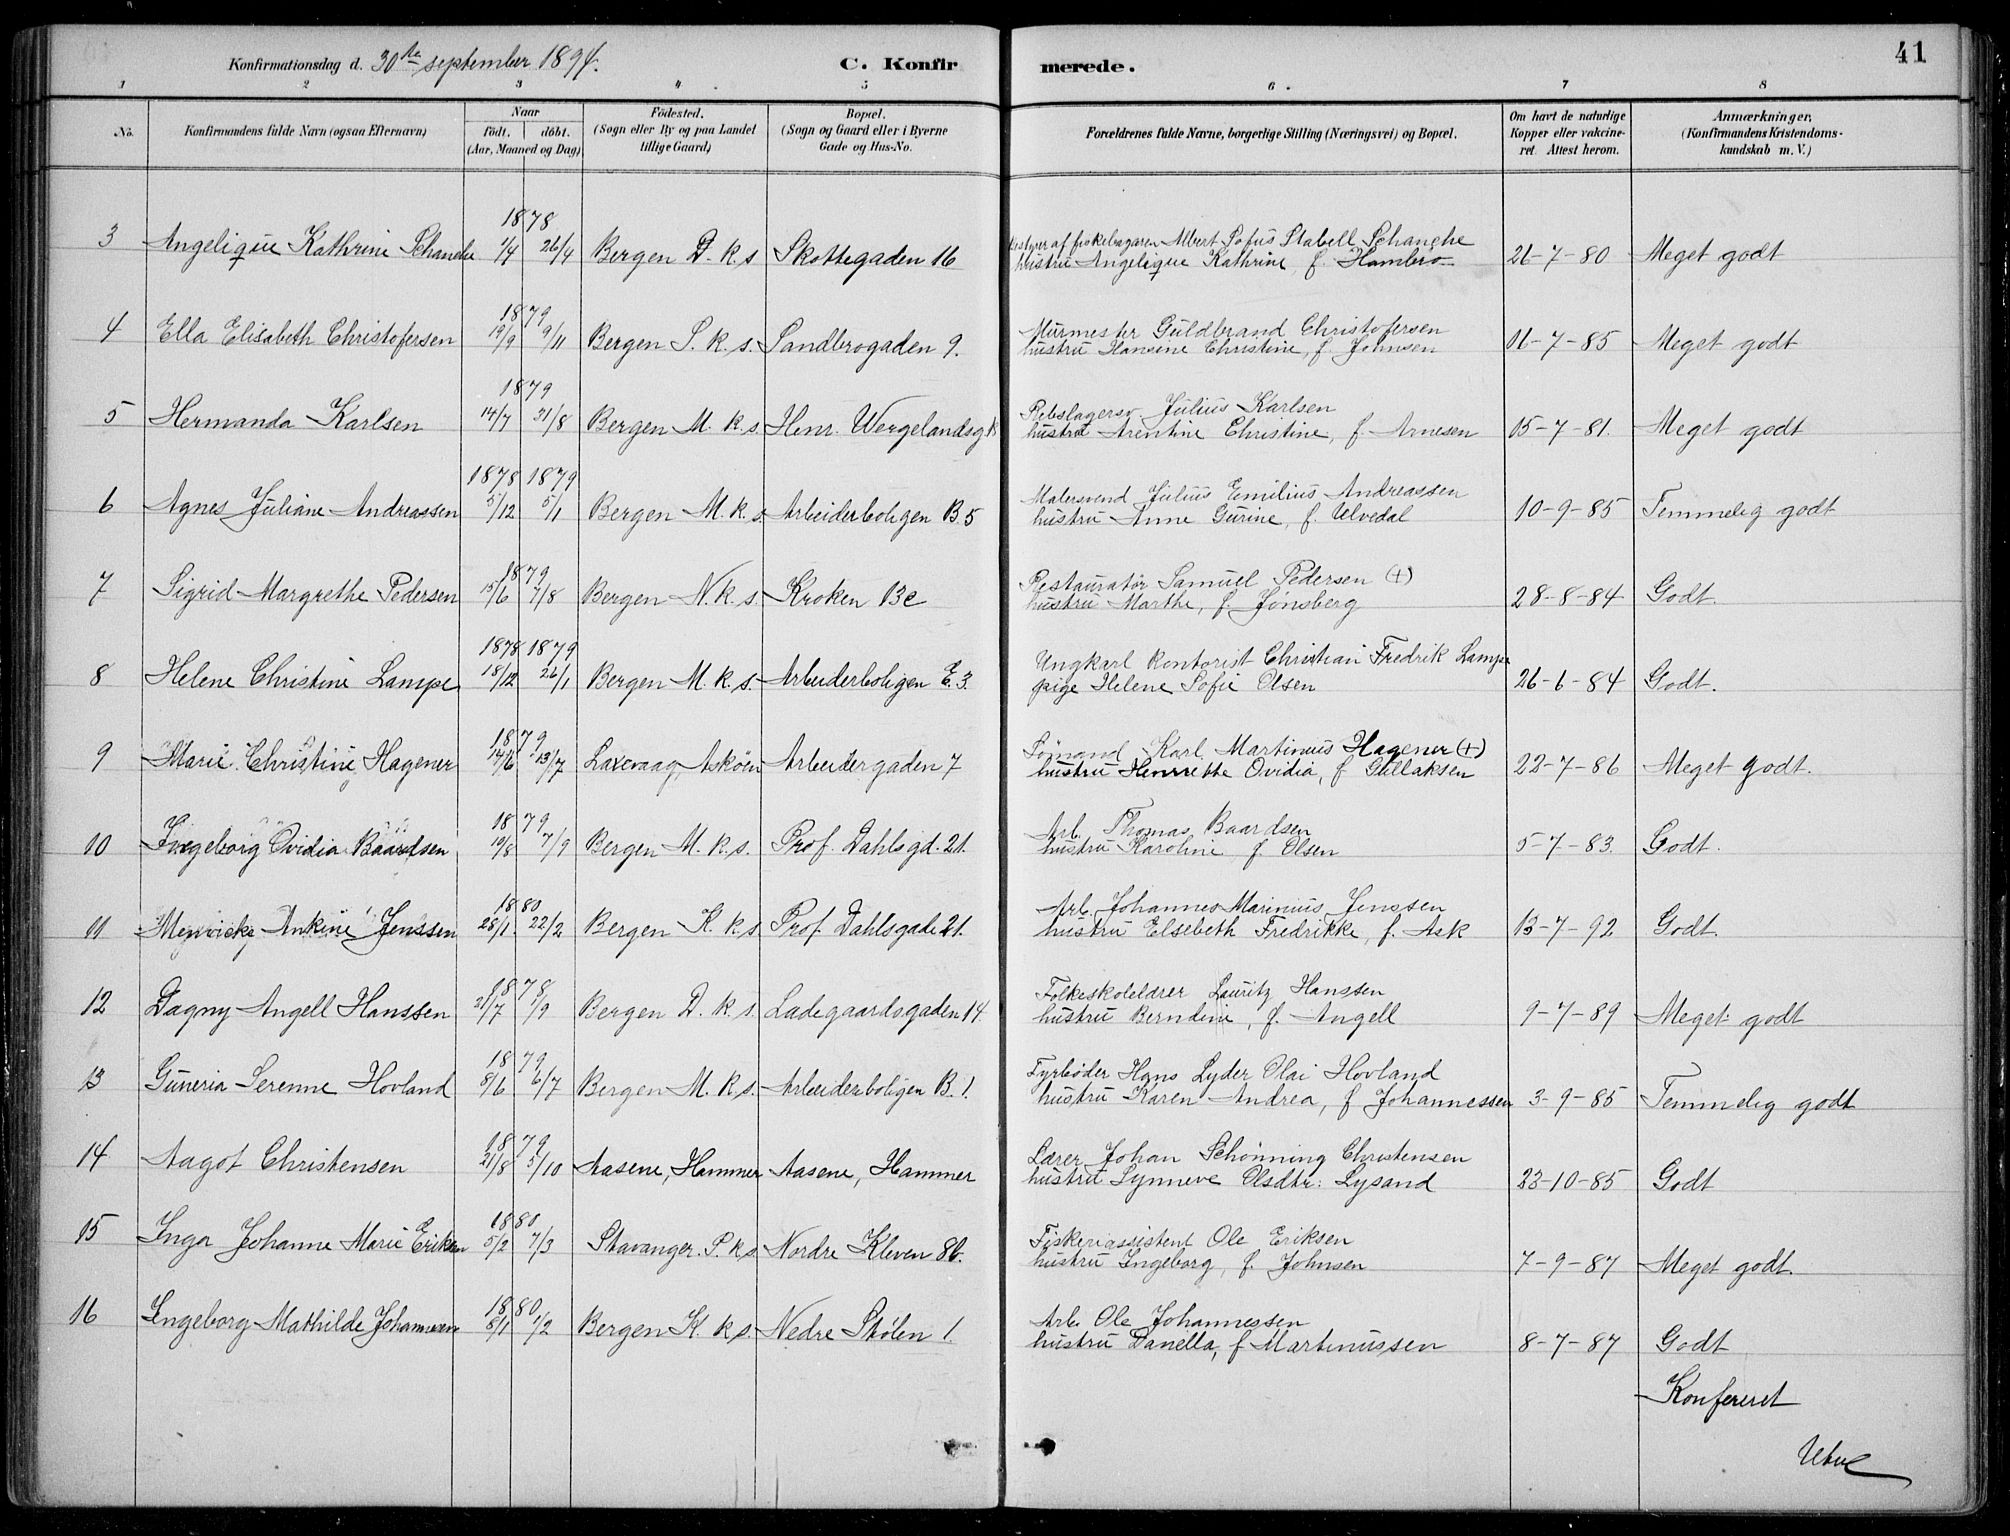 Konfirmationsdag d. 30te september 1894.
C. Konfirmerede.
41
1 2 3 4 5 6 7 8
No. Konfirmandens fulde Navn (ogsaa Efternavn) Naar födt. döbt. (Aar, Maaned og Dag) Födested. (Sogn eller By og paa Landet tillige Gaard) Bopæl. (Sogn og Gaard eller i Byerne Gade og Hus-No. Forældrenes fulde Navne, borgerlige Stilling (Næringsvei) og Bopæl. Om havt de naturlige Kopper eller vakcineret. Attest herom. Anmærkninger, (Konfirmandens Kristendomskundskab m. V.)
1878
3 Angelique Kathrine Schanche 7/4 26/4 Bergen D. k. s Skottegaden 16 af Albert Sofus Stabell Schanche
hustru Angelique Kathrine, f. Hambro 21-7-80 Meget godt
1879
4 Ella Elisabeth Christofersen 19/9 9/11 Bergen S. k. s. Sandbrogaden 9. Murmester Guldbrand Christofersen
hustru Hansine Christine, f. Johnsen 16-7-85 Meget godt
1879
5 Hermanda Karlsen 14/7 31/8 Bergen M. k. s. Henr. Wergelandsg. Rebslagersv. Julius Karlsen
hustru Arentine Christine, f. Arnesen 15-7-81. Meget godt
1878 1879
6 Agnes Juliane Andreassen 5/12 5/1 Bergen M. k. s. Arbeiderboligen B. 5 Malersvend Julius Emilius Andreassen
hustru Anne Gurine, f. Ulvedal 10-9-85 Temmelig godt
1879
7 Sigrid Margrethe Pedersen 15/6 7/8 Bergen N. k. s. Kroken 13c Restauratør Samuel Pedersen (+)
hustru Marthe, f. Jønsberg 28-8-84 Godt.
1878 1879
8 Helene Christine Lampe 18/12 26/1 Bergen M. k. s. Arbeiderboligen E. 3. Ungkarl kontorist Christian Fredrik Lampe
pige Helene Sofie Olsen 26-6-84 Godt.
1879
9 Marie Christine Hagener 14/6 13/7 Laxevaag, Askøen Arbeidergaden 7 Sømand Karl Martinius Hagener (+)
hustru Henriette Ovidia, f Gullaksen 22-7-86 Meget godt.
1879
10 Ingeborg Ovidia Baardsen 10/8 7/9 Bergen M. k. s. Prof. Dahlsgd. 21. Arb. Thomas Baardsen
hustru Karoline f. Olsen 5-7-83. Godt.
1880
11 Ankine Jenssen 28/1. 22/2 Bergen K. k. s Prof. Dahlsgade 21. Arb. Johannes Marinius Jenssen
hustru Elsebeth Fredrikke, f. Ask 13-7-92 Godt.
1878
12 Dagny Angell Hanssen 21/7 1/9 Bergen D. k. s. Ladegaardsgaden 14. Folkeskolelærer Lauritz Hanssen
hustru Berndine, f. Angell 9-7-89 Meget godt
1879
13 Guneria Serenne Hovland 8/6 6/7 Bergen M. k. s. Arbeiderboligen B. 1. Fyrbøder Hans Lyder Olai Hovland
hustru Karen Andrea, f Johannessen 3-9-85 Temmelig godt
1879
14 Aagot Christensen 21/8 5/10 Aasene, Hammer Aasene, Hammer Lærer Johan Schönning Christensen
hustru Synneve Olsdtr. Lysand 23-10-85 Godt
1880
15 Inga Johanne Marie Eriksen 5/2 7/3 Stavanger. P. k. s. Nordre Kleven 8b. Fiskeriassistent Ole Eriksen
hustru Ingeborg, f. Johnsen 7-9-87 Meget godt.
1880
16 Ingeborg Mathilde Johannessen 8/1 1/2 Bergen K. k. s. Nedre Stølen 1. Arb. Ole Johannessen
hustru Danella, f Martinussen 8-7-87 Godt
Konfereret